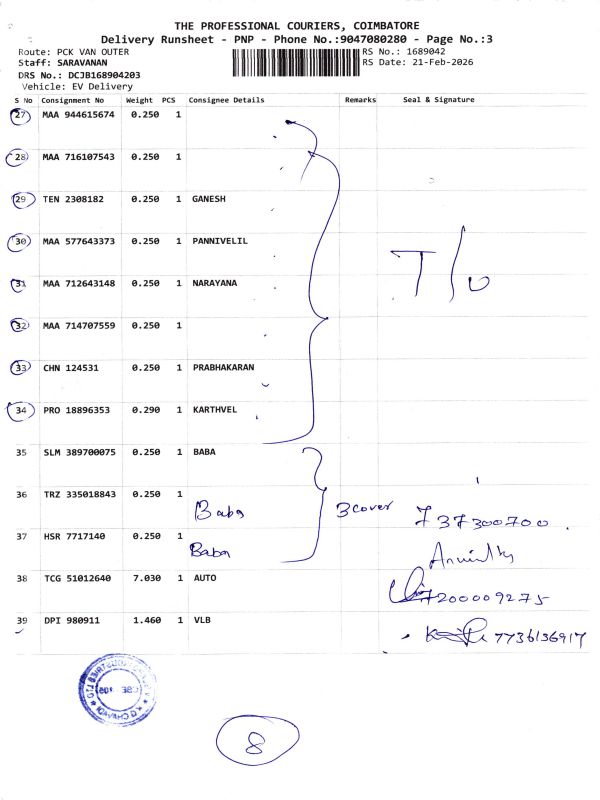 THE PROFESSIONAL COURIERS, COIMBATORE
Delivery Runsheet - PNP - Phone No.:9047080280 - Page No.:3
Route: PCK VAN OUTER RS No.: 1689042
Staff: SARAVANAN RS Date: 21-Feb-2026
DRS No.: DCJB168904203
Vehicle: EV Delivery
S No Consignment No Weight PCS Consignee Details Remarks Seal & Signature
27 MAA 944615674 0.250 1
28 MAA 716107543 0.250 1
29 TEN 2308182 0.250 1 GANESH
30 MAA 577643373 0.250 1 PANNIVELIL
T/o
31 MAA 712643148 0.250 1 NARAYANA
32 MAA 714707559 0.250 1
33 CHN 124531 0.250 1 PRABHAKARAN
34 PRO 18896353 0.290 1 KARTHVEL
35 SLM 389700075 0.250 1 BABA
36 TRZ 335018843 0.250 1 Baba 3 cover 737300700
37 HSR 7717140 0.250 1 Baba
38 TCG 51012640 7.030 1 AUTO 7200009275
39 DPI 980911 1.460 1 VLB 7736136917
8